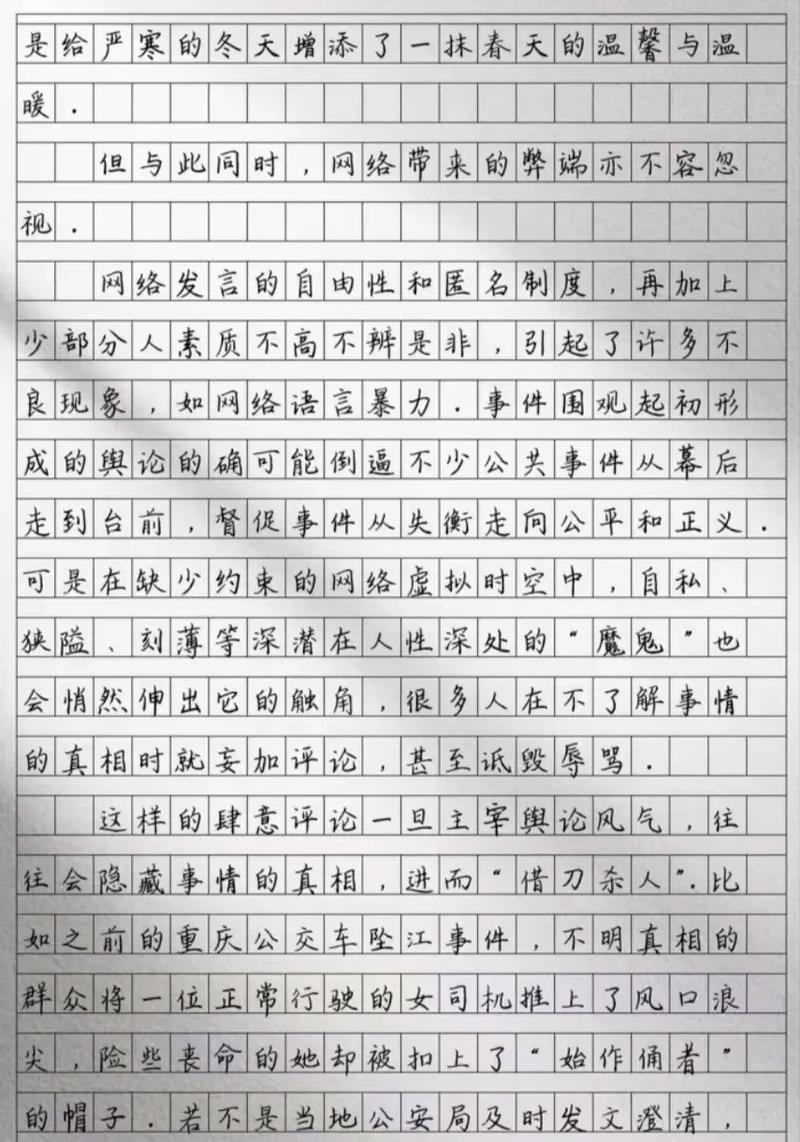 是给严寒的冬天增添了一抹春天的温馨与温
暖.
但与此同时,网络带来的弊端亦不容忽
视.
网络发言的自由性和匿名制度,再加上
少部分人素质不高不辨是非,引起了许多不
良现象,如网络语言暴力.事件围观起初形
成的舆论的确可能倒逼不少公共事件从幕后
走到台前,督促事件从失衡走向公平和正义.
可是在缺少约束的网络虚拟时空中,自私、
狭隘、刻薄等深潜在人性深处的“魔鬼”也
会悄然伸出它的触角,很多人在不了解事情
的真相时就妄加评论,甚至诋毁辱骂.
这样的肆意评论一旦主宰舆论风气,往
往会隐藏事情的真相,进而“借刀杀人”.比
如之前的重庆公交车坠江事件,不明真相的
群众将一位正常行驶的女司机推上了风口浪
尖,险些丧命的她却被扣上了“始作俑者”
的帽子.若不是当地公安局及时发文澄清,